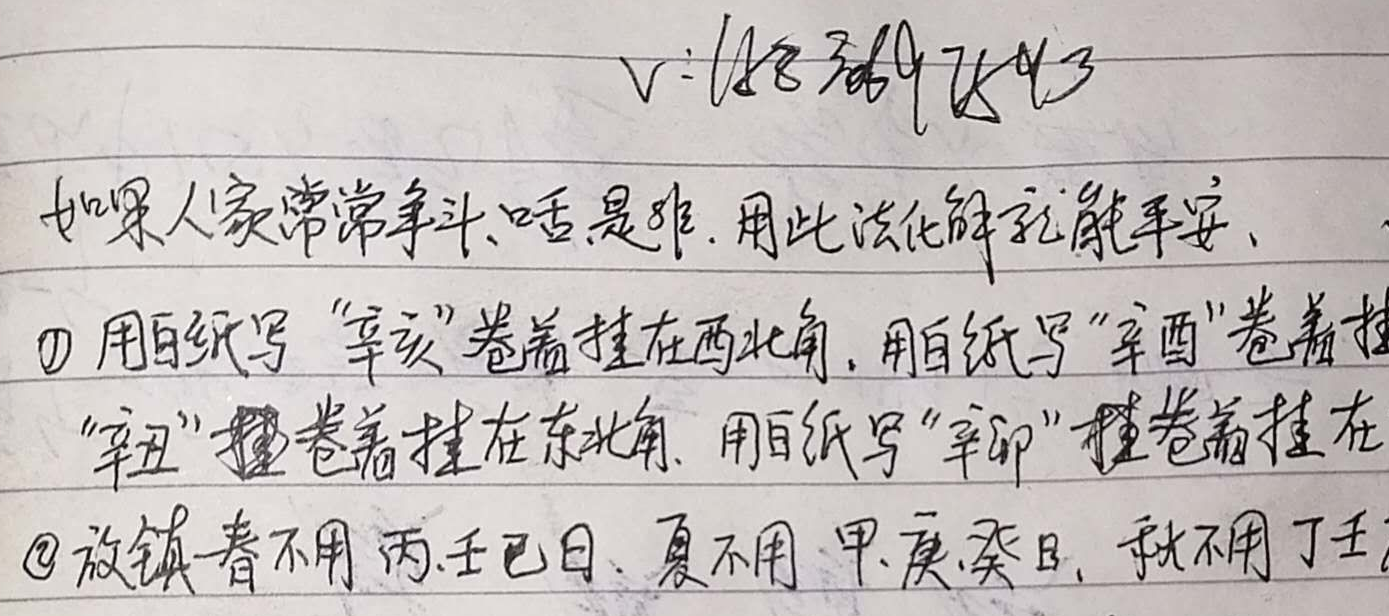 如果人家常常争斗、口舌是非.用此法化解就能平安、
① 用白纸写“辛亥”卷着挂在西北角.用白纸写“辛酉”卷着挂
“辛丑”卷着挂在东北角.用白纸写“辛卯”卷着挂在
②放镇春不用丙.壬巳日.夏不用甲.庚.癸日.秋不用丁壬